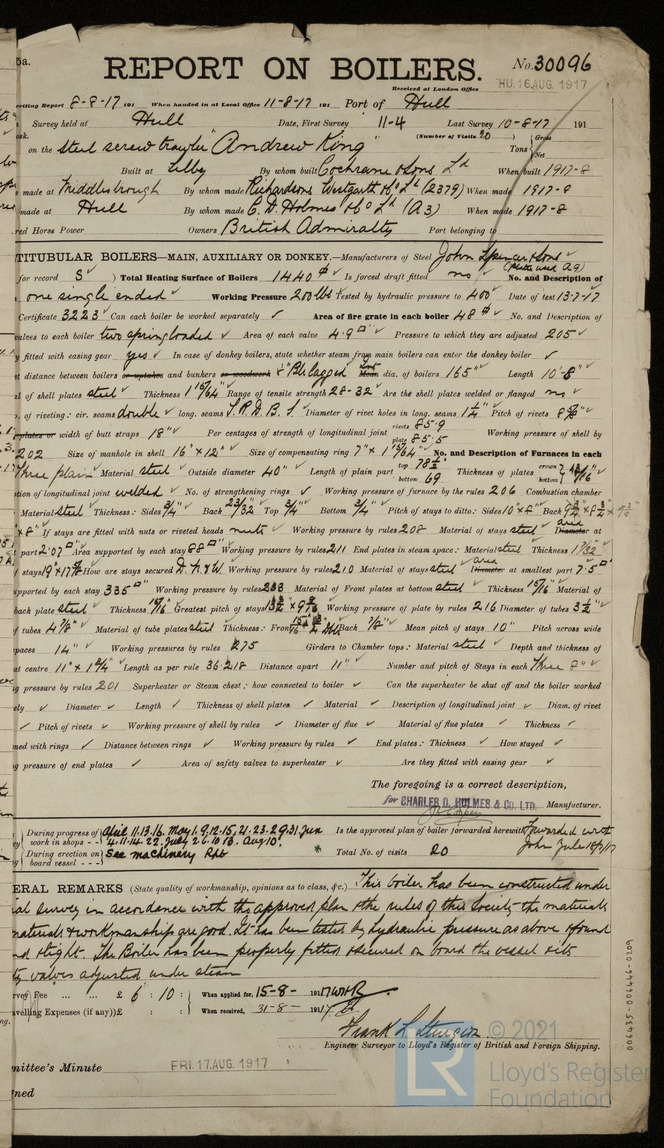 5a.
REPORT ON BOILERS.
No. 30096
Received at London Office THU. 16 AUG. 1917
writing Report 8-8-17 191 When handed in at Local Office 11-8-17 191 Port of Hull
Survey held at Hull Date, First Survey 11-4 Last Survey 10-8-17 191
(Number of Visits 20)
on the steel screw trawler "Andrew King" Tons { Gross Net
Built at Selby By whom built Cochrane & Sons Ld When built 1917-8
made at Middlesbrough By whom made Richardsons Westgarth & Co Ld (2379) When made 1917-8
made at Hull By whom made C. D. Holmes & Co Ld (A3) When made 1917-8
red Horse Power Owners British Admiralty Port belonging to
TITUBULAR BOILERS—MAIN, AUXILIARY OR DONKEY.—Manufacturers of Steel John Spencer & Sons
for record S ) Total Heating Surface of Boilers 1440 Is forced draft fitted no No. and Description of
one single ended Working Pressure 200 lbs Tested by hydraulic pressure to 400 Date of test 13-7-17
Certificate 3223 Can each boiler be worked separately ✓ Area of fire grate in each boiler 48 No. and Description of
valves to each boiler two spring loaded Area of each valve 4.9□" Pressure to which they are adjusted 205
y fitted with easing gear yes In case of donkey boilers, state whether steam from main boilers can enter the donkey boiler ✓
st distance between boilers or uptakes and bunkers or woodwork Mean dia. of boilers 165" Length 10'-8"
al of shell plates steel Thickness 1 15/64 Range of tensile strength 28-32 Are the shell plates welded or flanged no
. of riveting: cir. seams double long. seams Diameter of rivet holes in long. seams 1¼" Pitch of rivets
plates or width of butt straps 18" Per centages of strength of longitudinal joint rivets 85.9 plate 85.5 Working pressure of shell by
202 Size of manhole in shell 16" x 12" Size of compensating ring No. and Description of Furnaces in each
three plain Material steel Outside diameter 40" Length of plain part top bottom 69 Thickness of plates crown bottom
tion of longitudinal joint welded No. of strengthening rings ✓ Working pressure of furnace by the rules 206 Combustion chamber
Material steel Thickness: Sides Back 23/32 Top 3/4" Bottom 3/4" Pitch of stays to ditto: Sides 10" x 8" Back
x 8" If stays are fitted with nuts or riveted heads nuts Working pressure by rules 208 Material of stays steel Diameter area at
part 2.07□" Area supported by each stay 88□" Working pressure by rules 211 End plates in steam space: Material steel Thickness 1 1/32
How are stays secured Working pressure by rules 210 Material of stays steel Diameter area at smallest part 7.5□"
pported by each stay 335□" Working pressure by rules Material of Front plates at bottom steel Thickness 15/16 Material of
back plate steel Thickness Greatest pitch of stays Working pressure of plate by rules 216 Diameter of tubes
f tubes 4 7/8" Material of tube plates steel Thickness: Front Back 7/8" Mean pitch of stays 10" Pitch across wide
paces 14" Working pressures by rules 275 Girders to Chamber tops: Material steel Depth and thickness of
at centre Length as per rule 36.218 Distance apart 11" Number and pitch of Stays in each three 8"
g pressure by rules 201 Superheater or Steam chest; how connected to boiler ✓ Can the superheater be shut off and the boiler worked
ely ✓ Diameter ✓ Length ✓ Thickness of shell plates ✓ Material ✓ Description of longitudinal joint ✓ Diam. of rivet
✓ Pitch of rivets ✓ Working pressure of shell by rules ✓ Diameter of flue ✓ Material of flue plates ✓ Thickness ✓
ned with rings ✓ Distance between rings ✓ Working pressure by rules ✓ End plates: Thickness ✓ How stayed ✓
g pressure of end plates ✓ Area of safety valves to superheater ✓ Are they fitted with easing gear ✓
The foregoing is a correct description,
for CHARLES D. HOLMES & CO. LTD. Manufacturer.
During progress of work in shops - - April 11.13.16. May 1.9.12.15.21.23.29.31. Jun 4.11.14.22. July 2.6.10.13. Aug 10. Is the approved plan of boiler forwarded herewith Forwarded with
During erection on board vessel - - - See machinery Rpt Total No. of visits 20
ERAL REMARKS (State quality of workmanship, opinions as to class, &c.) This boiler has been constructed under
ial survey in accordance with the approved plan & the rules of this Society the materials
materials & workmanship are good. It has been tested by hydraulic pressure as above & found
nd & tight. The Boiler has been properly fitted & secured on board the vessel & its
ty valves adjusted under steam
rvey Fee ... ... £ 6 : 10 : When applied for, 15-8- 1917
avelling Expenses (if any) £ : : When received, 31-8- 1917
Frank L. Sturgeon
Engineer Surveyor to Lloyd's Register of British and Foreign Shipping.
mittee's Minute FRI. 17 AUG. 1917
ned
006435-006446-0209
© 2021
LR
Lloyd's Register
Foundation